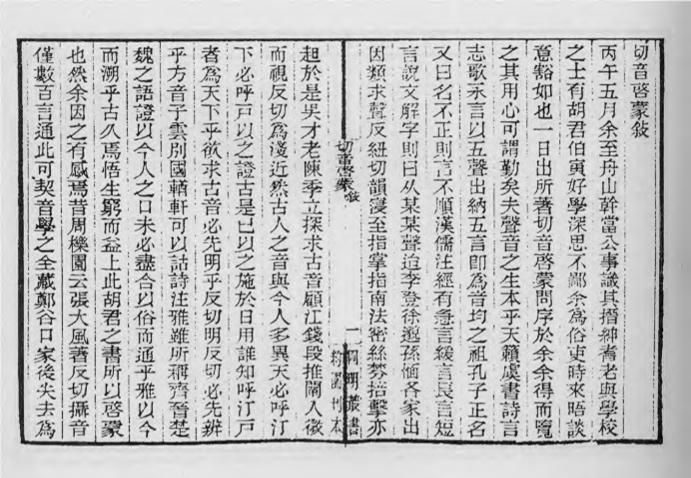 切音啓蒙敍
丙午五月余至舟山幹當公事識其搢紳耆老與學校
之士有胡君伯寅好學深思不鄙余爲俗吏時來晤談
意豁如也一日出所著切音啓蒙問序於余余得而覽
之其用心可謂勤矣夫聲音之生本乎天籟虞書詩言
志歌永言以五聲出納五言即爲音均之祖孔子正名
又曰名不正則言不順漢儒注經有急言緩言長言短
言說文解字則曰从某某聲迨李登徐邈孫愐各家出
因類求聲反紐切韻寖至指掌指南法密絲棼掊擊亦
切音啓蒙
敍
一
四明叢書
約園刊本
起於是吴才老陳季立探求古音顧江錢段推闡入微
而視反切爲淺近然古人之音與今人多異天必呼汀
下必呼戸以之證古是已以之施於日用誰知呼汀戸
者爲天下乎欲求古音必先明乎反切明反切必先辨
乎方音子雲別國輶軒可以詁詩注雅雖所稱齊晉楚
魏之語證以今人之口未必盡合以俗而通乎雅以今
而溯乎古久焉悟生窮而益上此胡君之書所以啓蒙
也然余因之有感焉昔周櫟園云張大風著反切攝音
僅數百言通此可契音學之全藏鄭谷口家後失去爲